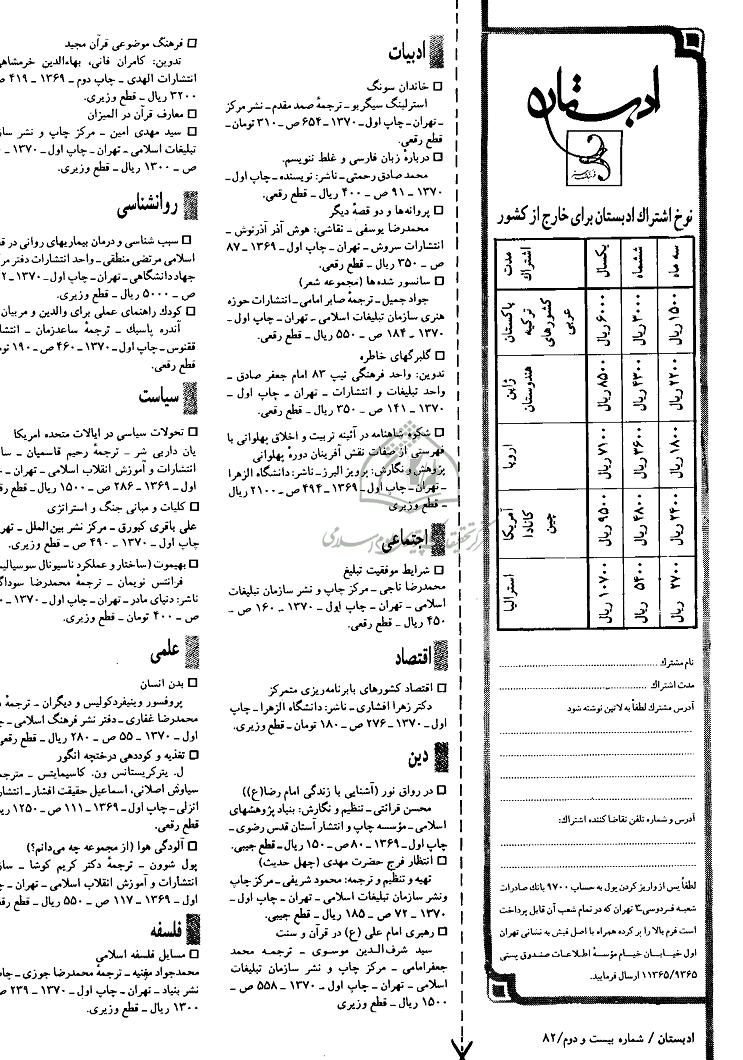 ادبستان
نرخ اشتراك ادبستان برای خارج از کشور
مدت اشتراك
یکسال
ششماه
سه ماه
پاکستان ترکیه کشورهای عربی
۶۰۰۰ ریال
۳۰۰۰ ریال
۱۵۰۰ ریال
ژاپن هندوستان
۸۵۰۰ ریال
۴۳۰۰ ریال
۲۲۰۰ ریال
اروپا
۷۱۰۰ ریال
۳۶۰۰ ریال
۱۸۰۰ ریال
آمریکا کانادا چین
۹۵۰۰ ریال
۴۸۰۰ ریال
۲۴۰۰ ریال
استرالیا
۱۰۷۰۰ ریال
۵۴۰۰ ریال
۲۷۰۰ ریال
نام مشترك
مدت اشتراك
آدرس مشترك لطفاً به لاتین نوشته شود
آدرس و شماره تلفن تقاضا کننده اشتراك:
لطفاً پس از واریز کردن پول به حساب ۹۷۰۰ بانك صادرات
شعبه فردوسی۳ تهران که در تمام شعب آن قابل پرداخت
است فرم بالا را پر کرده همراه با اصل فیش به نشانی تهران
اول خیـابـان خیـام مؤسـهٔ اطـلاعـات صنـدوق پستی
۱۱۳۶۵/۹۳۶۵ ارسال فرمایید.
ادبیات
□ خاندان سونگ
استرلینگ سیگریو ـ ترجمهٔ صمد مقدم ـ نشر مرکز
ـ تهران ـ چاپ اول ـ ۱۳۷۰ ـ ۶۵۴ ص ـ ۳۱۰ تومان ـ
قطع رقعی.
□ دربارهٔ زبان فارسی و غلط ننویسم.
محمد صادق رحمتی ـ ناشر: نویسنده ـ چاپ اول ـ
۱۳۷۰ ـ ۹۱ ص ـ ۴۰۰ ریال ـ قطع رقعی.
□ پروانه‌ها و دو قصهٔ دیگر
محمدرضا یوسفی ـ نقاشی: هوش آذر آذرنوش ـ
انتشارات سروش ـ تهران ـ چاپ اول ـ ۱۳۶۹ ـ ۸۷
ص ـ ۳۵۰ ریال ـ قطع رقعی.
□ سانسور شده‌ها (مجموعه شعر)
جواد جمیل ـ ترجمهٔ صابر امامی ـ انتشارات حوزه
هنری سازمان تبلیغات اسلامی ـ تهران ـ چاپ اول ـ
۱۳۷۰ ـ ۱۸۴ ص ـ ۵۵۰ ریال ـ قطع رقعی.
□ گلبرگهای خاطره
تدوین: واحد فرهنگی تیپ ۸۳ امام جعفر صادق ـ
واحد تبلیغات و انتشارات ـ تهران ـ چاپ اول ـ
۱۳۷۰ ـ ۱۴۱ ص ـ ۳۵۰ ریال ـ قطع رقعی.
□ شکوه شاهنامه در آئینه تربیت و اخلاق پهلوانی با
فهرستی از صفات نقش آفرینان دورهٔ پهلوانی
پژوهش و نگارش: پرویز البرز ـ ناشر: دانشگاه الزهرا
ـ تهران ـ چاپ اول ـ ۱۳۶۹ ـ ۴۹۴ ص ـ ۲۱۰۰ ریال
ـ قطع وزیری
اجتماعی
□ شرایط موفقیت تبلیغ
محمدرضا ناجی ـ مرکز چاپ و نشر سازمان تبلیغات
اسلامی ـ تهران ـ چاپ اول ـ ۱۳۷۰ ـ ۱۶۰ ص ـ
۴۵۰ ریال ـ قطع رقعی.
اقتصاد
□ اقتصاد کشورهای بابرنامه‌ریزی متمرکز
دکتر زهرا افشاری ـ ناشر: دانشگاه الزهرا ـ چاپ
اول ـ ۱۳۷۰ ـ ۲۷۶ ص ـ ۱۸۰ تومان ـ قطع وزیری.
دین
□ در رواق نور (آشنایی با زندگی امام رضا(ع))
محسن قرائتی ـ تنظیم و نگارش: بنیاد پژوهشهای
اسلامی ـ مؤسسه چاپ و انتشار آستان قدس رضوی ـ
چاپ اول ـ ۱۳۶۹ ـ ۸۰ ص ـ ۱۵۰ ریال ـ قطع جیبی.
□ انتظار فرج حضرت مهدی (چهل حدیث)
تهیه و تنظیم و ترجمه: محمود شریفی ـ مرکز چاپ
ونشر سازمان تبلیغات اسلامی ـ تهران ـ چاپ اول ـ
۱۳۷۰ ـ ۷۲ ص ـ ۱۸۵ ریال ـ قطع جیبی.
□ رهبری امام علی (ع) در قرآن و سنت
سید شرف‌الدین موسوی ـ ترجمه محمد
جعفرامامی ـ مرکز چاپ و نشر سازمان تبلیغات
اسلامی ـ تهران ـ چاپ اول ـ ۱۳۷۰ ـ ۵۵۸ ص ـ
۱۵۰۰ ریال ـ قطع وزیری
□ فرهنگ موضوعی قرآن مجید
تدوین: کامران فانی، بهاءالدین خرمشاهی
انتشارات الهدی ـ چاپ دوم ـ ۱۳۶۹ ـ ۴۱۹ ص
۳۲۰۰ ریال ـ قطع وزیری.
□ معارف قرآن در المیزان
□ سید مهدی امین ـ مرکز چاپ و نشر
تبلیغات اسلامی ـ تهران ـ چاپ اول ـ ۱۳۷۰ ـ
ص ـ ۱۳۰۰ ریال ـ قطع وزیری.
روانشناسی
□ سبب شناسی و درمان بیماریهای روانی در
اسلامی مرتضی منطقی ـ واحد انتشارات دفتر
جهاد دانشگاهی ـ تهران ـ چاپ اول ـ ۱۳۷۰ ـ
ص ـ ۵۰۰۰ ریال ـ قطع وزیری.
□ کودك راهنمای عملی برای والدین و مربیان
آندره پاسیك ـ ترجمهٔ ساعدزمان ـ
ققنوس ـ چاپ اول ـ ۱۳۷۰ ـ ۴۶۰ ص ـ ۱۹۰
قطع رقعی.
سیاست
□ تحولات سیاسی در ایالات متحده امریکا
یان داربی شر ـ ترجمهٔ رحیم قاسمیان ـ
انتشارات و آموزش انقلاب اسلامی ـ تهران ـ
اول ـ ۱۳۶۹ ـ ۲۸۶ ص ـ ۱۵۰۰ ریال ـ قطع
□ کلیات و مبانی جنگ و استراتژی
علی باقری کبورق ـ مرکز نشر بین‌الملل ـ
چاپ اول ـ ۱۳۷۰ ـ ۴۹۰ ص ـ قطع وزیری.
□ بهیموت (ساختار و عملکرد ناسیونال
فرانتس نویمان ـ ترجمهٔ محمدرضا
ناشر: دنیای مادر ـ تهران ـ چاپ اول ـ ۱۳۷۰ ـ
ص ـ ۴۰۰ تومان ـ قطع وزیری.
علمی
□ بدن انسان
پروفسور وینیفردکولیس و دیگران ـ ترجمهٔ
محمدرضا غفاری ـ دفتر نشر فرهنگ اسلامی ـ
اول ـ ۱۳۷۰ ـ ۵۵ ص ـ ۲۸۰ ریال ـ قطع رقعی
□ تغذیه و کوددهی درختچه انگور
ل. پترکریستانس ون. کاسیمایتس ـ
سیاوش اصلانی، اسماعیل حقیقت افشار ـ
انزلی ـ چاپ اول ـ ۱۳۶۹ ـ ۱۱۱ ص ـ ۱۲۵۰
قطع رقعی.
□ آلودگی هوا (از مجموعه چه می‌دانم؟)
پول شوون ـ ترجمهٔ دکتر کریم کوشا ـ
انتشارات و آموزش انقلاب اسلامی ـ تهران ـ
اول ـ ۱۳۶۹ ـ ۱۱۷ ص ـ ۵۵۰ ریال ـ قطع
فلسفه
□ مسایل فلسفه اسلامی
محمدجواد مغنیه ـ ترجمهٔ محمدرضا جوزی ـ
نشر بنیاد ـ تهران ـ چاپ اول ـ ۱۳۷۰ ـ ۲۳۹
۱۳۰۰ ریال ـ قطع وزیری.
ادبستان / شماره بیست و دوم/ ۸۲